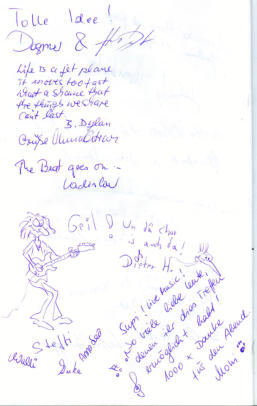 Tolle Idee!
Dagmar &
Life is a jet plane
it moves too fast
What a shame that
the things we share
can't last
B. Dylan
Grüße
The Beat goes on...
Ladislav
Geil :D Un du
is auch da!
Dieter H.
Steffi
Willi
Super Live music!
So viele liebe Leute,
denen ihr dies Treffen
ermöglicht habt!
1000 x Danke
für den Abend